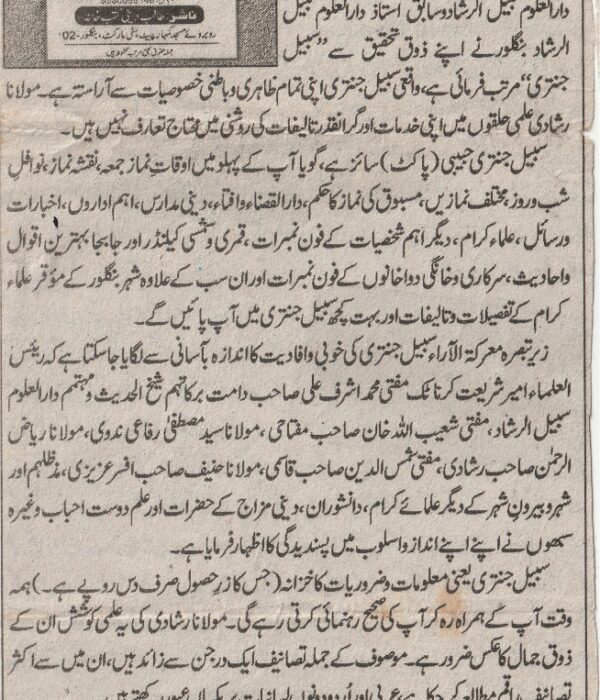 ناشر:
روبروئے مسجد کمہار پیٹ، سٹی مارکٹ، بنگلور-02'
دارالعلوم سبیل الرشاد و سابق استاذ دارالعلوم سبیل
الرشاد بنگلور نے اپنے ذوق تحقیق سے ”سبیل
جنتری“ مرتب فرمائی ہے، واقعی سبیل جنتری اپنی تمام ظاہری و باطنی خصوصیات سے آراستہ ہے۔ مولانا
رشادی علمی حلقوں میں اپنی خدمات اور گرانقدر تالیفات کی روشنی میں محتاج تعارف نہیں ہیں۔
سبیل جنتری جیبی (پاکٹ) سائز ہے، گویا آپ کے پہلو میں اوقاتِ نماز جمعہ، نقشہ نماز، نوافلِ
شب و روز، مختلف نمازیں، مسبوق کی نماز کا حکم، دارالقضاء وافتاء، دینی مدارس، اہم اداروں، اخبارات
ورسائل، علماء کرام، دیگر اہم شخصیات کے فون نمبرات، قمری و شمسی کیلنڈر اور جابجا بہترین اقوال
واحادیث، سرکاری و خانگی دواخانوں کے فون نمبرات اور ان سب کے علاوہ شہر بنگلور کے مؤقر علماء
کرام کے تفصیلات و تالیفات اور بہت کچھ سبیل جنتری میں آپ پائیں گے۔
زیر تبصرہ معرکۃ الآراء سبیل جنتری کی خوبی و افادیت کا اندازہ بآسانی سے لگایا جا سکتا ہے کہ رئیس
العلماء امیر شریعت کرناٹک مفتی محمد اشرف علی صاحب دامت برکاتہم شیخ الحدیث و مہتمم دارالعلوم
سبیل الرشاد، مفتی شعیب اللہ خان صاحب مفتاحی، مولانا سید مصطفیٰ رفاعی ندوی، مولانا ریاض
الرحمٰن صاحب رشادی، مفتی شمس الدین صاحب قاسمی، مولانا حنیف صاحب افسر عزیزی، مدظلہم اور
شہر و بیرون شہر کے دیگر علمائے کرام، دانشوران، دینی مزاج کے حضرات اور علم دوست احباب وغیرہ
سبھوں نے اپنے اپنے انداز و اسلوب میں پسندیدگی کا اظہار فرمایا ہے۔
سبیل جنتری یعنی معلومات و ضروریات کا خزانہ (جس کا زرِ حصول صرف دس روپے ہے۔) ہمہ
وقت آپ کے ہمراہ رہ کر آپ کی صحیح رہنمائی کرتی رہے گی۔ مولانا رشادی کی یہ علمی کوشش ان کے
ذوق جمال کا عکس ضرور ہے۔ موصوف کے جملہ تصانیف ایک درجن سے زائد ہیں، ان میں سے اکثر